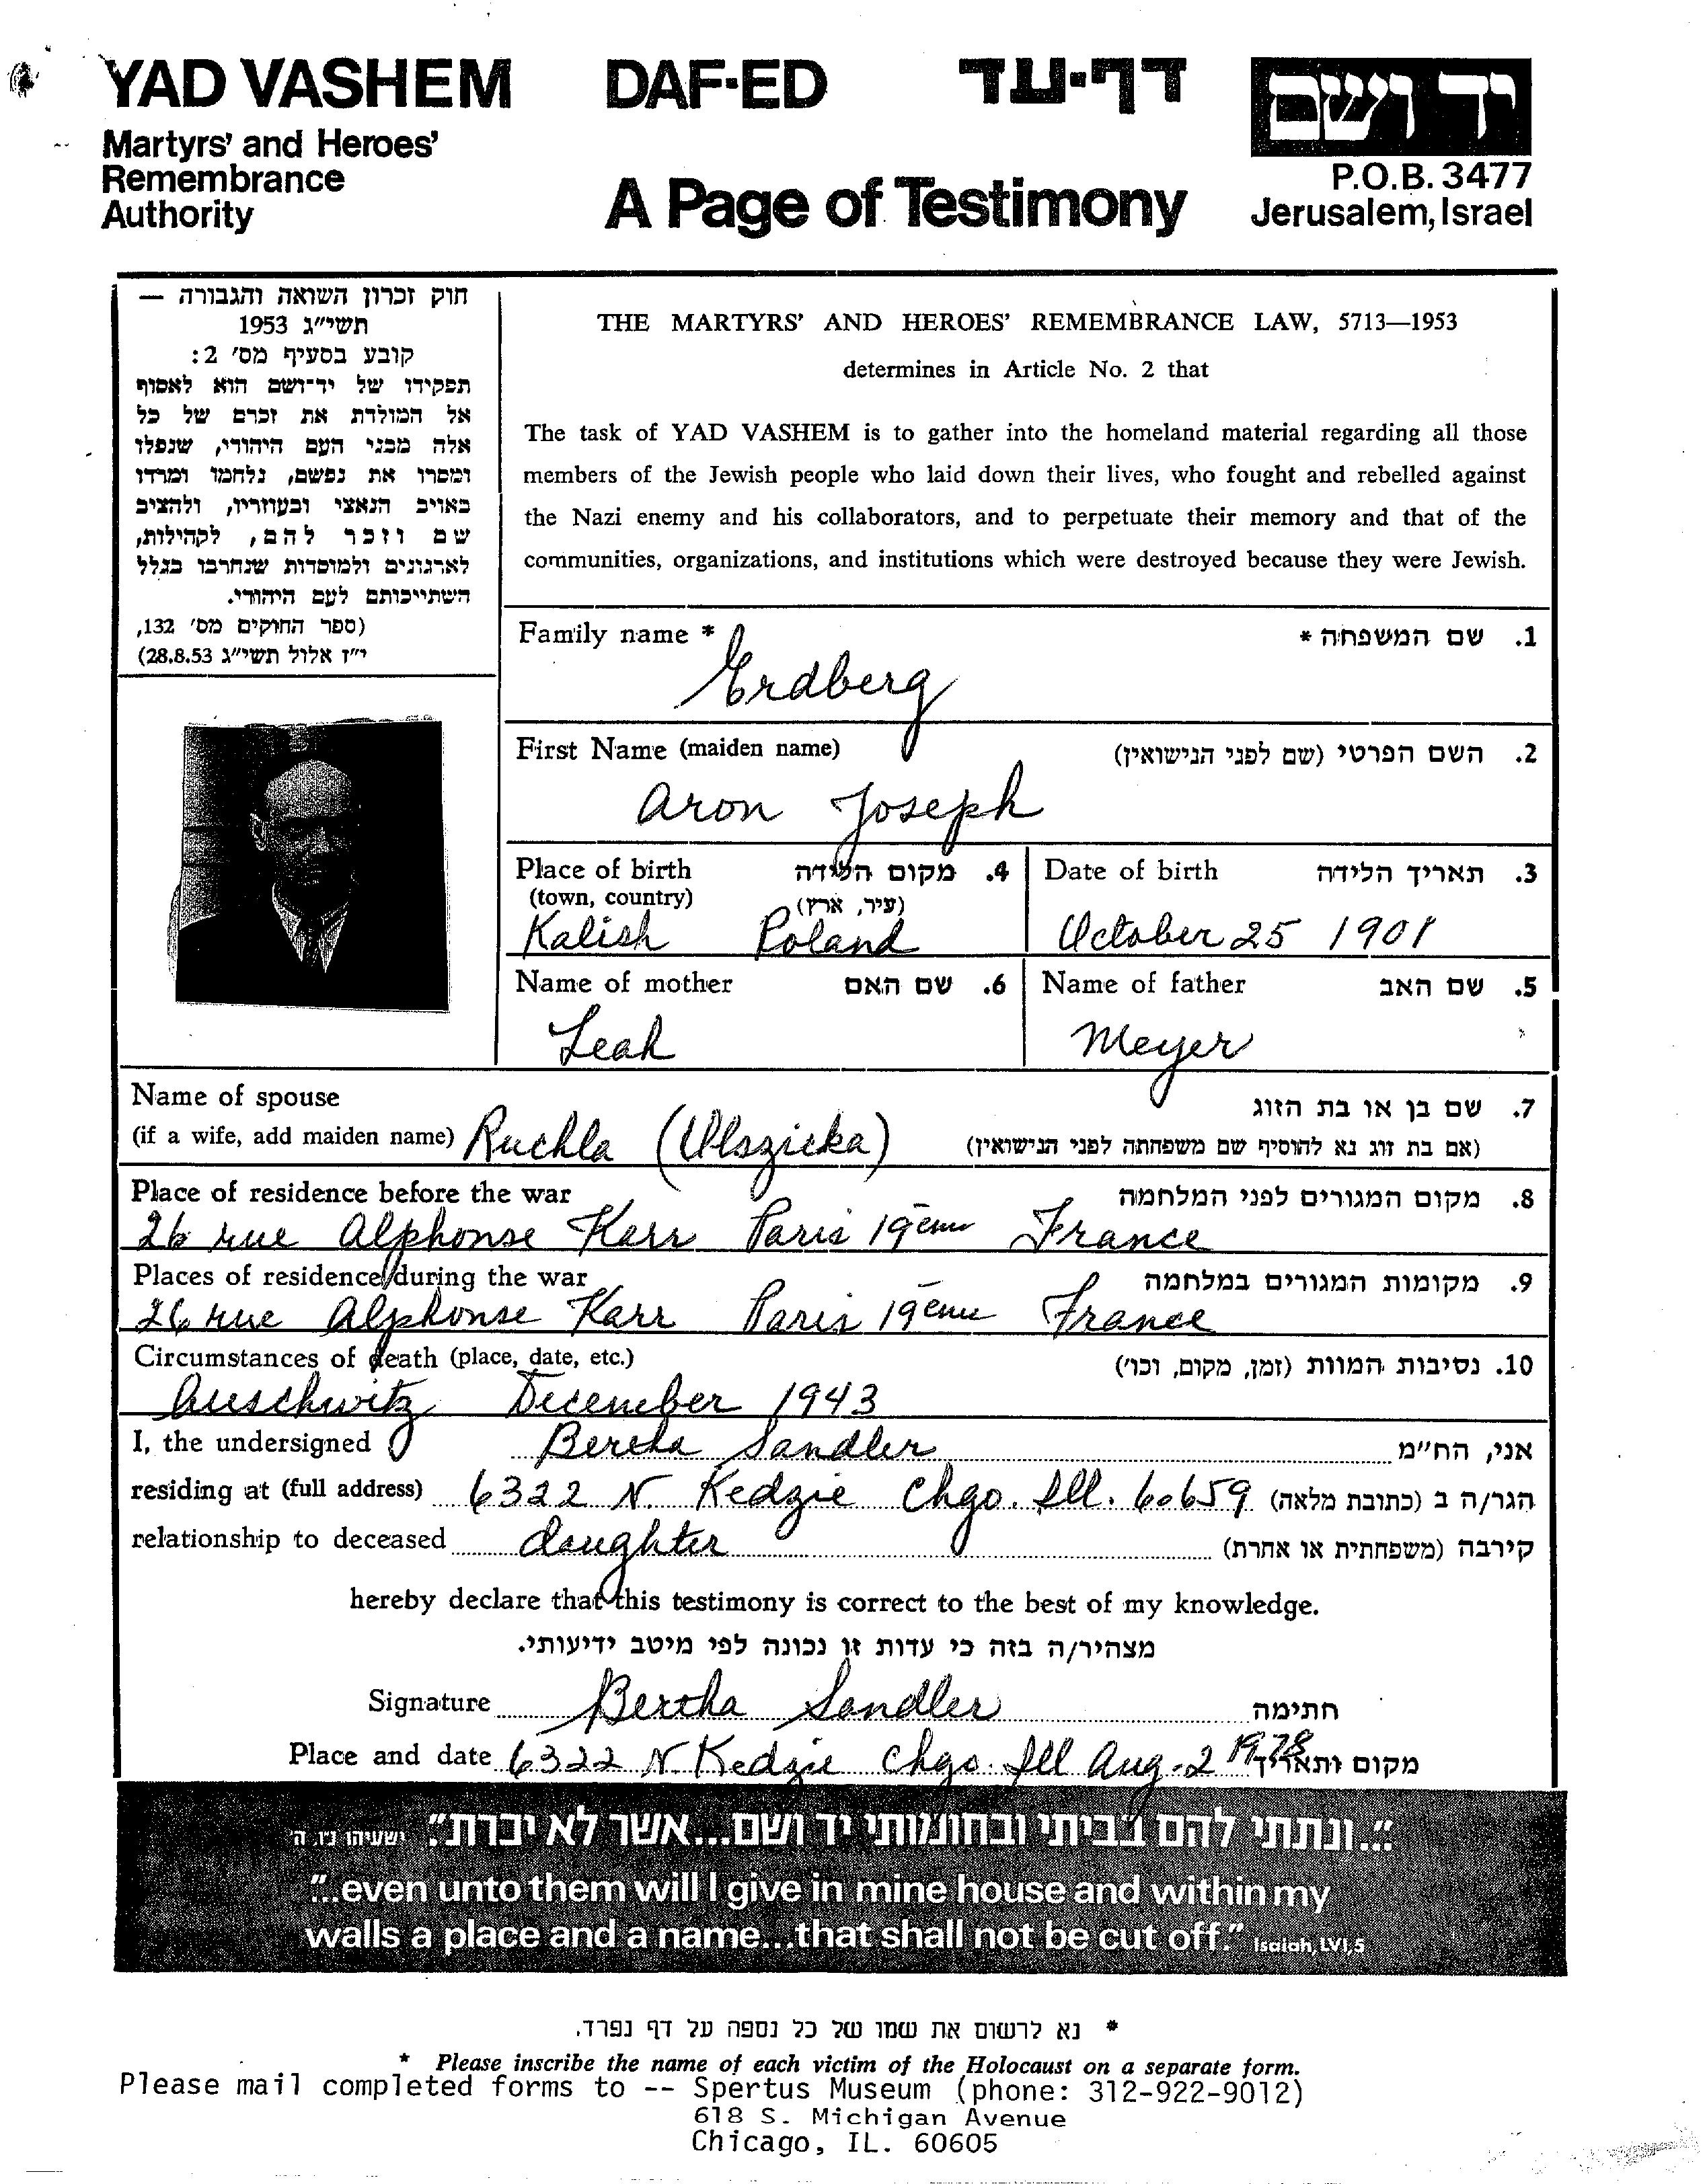 YAD VASHEM DAF-ED דף-עד יד ושם
Martyrs' and Heroes'
Remembrance
Authority
A Page of Testimony
P.O.B. 3477
Jerusalem, Israel
חוק זכרון השואה והגבורה —
תשי"ג 1953
קובע בסעיף מס' 2:
תפקידו של יד־ושם הוא לאסוף
אל המולדת את זכרם של כל
אלה מבני העם היהודי, שנפלו
ומסרו את נפשם, נלחמו ומרדו
באויב הנאצי ובעוזריו, ולהציב
שם וזכר להם, לקהילות,
לארגונים ולמוסדות שנחרבו בגלל
השתייכותם לעם היהודי.
(ספר החוקים מס' 132,
י"ז אלול תשי"ג 28.8.53)
THE MARTYRS' AND HEROES' REMEMBRANCE LAW, 5713—1953
determines in Article No. 2 that
The task of YAD VASHEM is to gather into the homeland material regarding all those
members of the Jewish people who laid down their lives, who fought and rebelled against
the Nazi enemy and his collaborators, and to perpetuate their memory and that of the
communities, organizations, and institutions which were destroyed because they were Jewish.
Family name * 1. שם המשפחה *
Erdberg
First Name (maiden name) 2. השם הפרטי (שם לפני הנישואין)
Aron Joseph
Place of birth 4. מקום הלידה
(town, country) (עיר, ארץ)
Kalish Poland
Date of birth 3. תאריך הלידה
October 25 1901
Name of mother 6. שם האם
Leah
Name of father 5. שם האב
Meyer
Name of spouse 7. שם בן או בת הזוג
(if a wife, add maiden name) Ruchla (Ulszicka) (אם בת זוג נא להוסיף שם משפחתה לפני הנישואין)
Place of residence before the war 8. מקום המגורים לפני המלחמה
26 rue Alphonse Karr Paris 19eme France
Places of residence during the war 9. מקומות המגורים במלחמה
26 rue Alphonse Karr Paris 19eme France
Circumstances of death (place, date, etc.) 10. נסיבות המוות (זמן, מקום, וכו')
Auschwitz December 1943
I, the undersigned Bertha Sandler אני, הח"מ
residing at (full address) 6322 N. Kedzie Chgo. Ill. 60659 הגר/ה ב (כתובת מלאה)
relationship to deceased daughter קירבה (משפחתית או אחרת)
hereby declare that this testimony is correct to the best of my knowledge.
מצהיר/ה בזה כי עדות זו נכונה לפי מיטב ידיעותי.
Signature Bertha Sandler חתימה
Place and date 6322 N. Kedzie Chgo. Ill Aug-2 1978 מקום ותאריך
"...ונתתי להם בביתי ובחומותי יד ושם...אשר לא יכרת." ישעיהו נ"ו ה'
"...even unto them will I give in mine house and within my
walls a place and a name...that shall not be cut off." Isaiah, LVI,5
* נא לרשום את שמו של כל נספה על דף נפרד.
* Please inscribe the name of each victim of the Holocaust on a separate form.
Please mail completed forms to -- Spertus Museum (phone: 312-922-9012)
618 S. Michigan Avenue
Chicago, IL. 60605